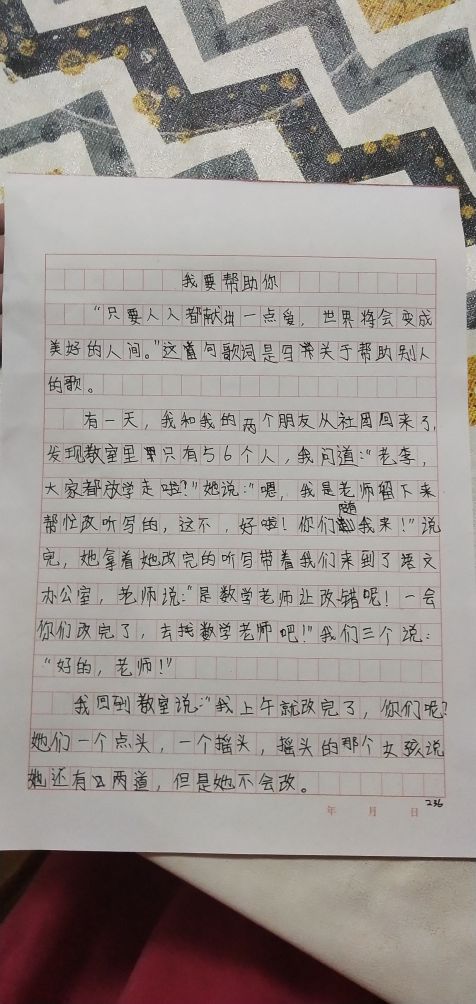 我要帮助你
“只要人人都献出一点爱，世界将会变成
美好的人间。”这首句歌词是写关于帮助别人
的歌。
有一天，我和我的两个朋友从社团回来了，
发现教室里只有56个人，我问道：“老李，
大家都放学走啦？”她说：“嗯，我是老师留下来
帮忙改听写的，这不，好啦！你们随我来！”说
完，她拿着她改完的听写带着我们来到了语文
办公室，老师说：“是数学老师让改错呢！一会
你们改完了，去找数学老师吧！”我们三个说：
“好的，老师！”
我回到教室说：“我上午就改完了，你们呢？
她们一个点头，一个摇头，摇头的那个女孩说
她还有两道，但是她不会改。
年 月 日
236